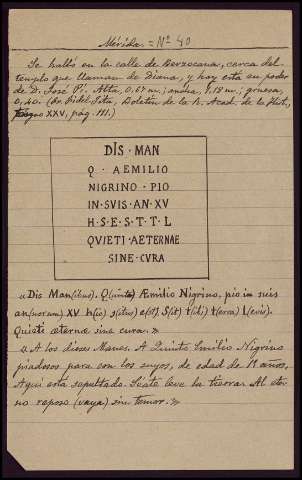 Mérida = Nº 40
Se halló en la calle de Berzocana, cerca del
templo que llaman de Diana, y hoy está en poder
de D. José Pi. Alta, 0,67 m.; ancha, 1,18 m.; gruesa,
0,40. (Dr Fidel Fita, Boletín de la R. Acad. de la Hist,
tomo XXV, pág. 111.)
DIS · MAN
Q · AEMILIO
NIGRINO · PIO
IN · SVIS · AN · XV
H · S · E · S · T · T · L
QVIETI · AETERNAE
SINE · CVRA
«Dis Man(ibus). Q(uinto) Æmilio Nigrino, pio in suis
an(norum) XV h(ic) s(itus) e(st) S(it) t(ibi) t(erra) l(evis).
Quieti æternæ sine cura.»
«A los dioses Manes. A Quinto Emilio Nigrino
piadoso para con los suyos, de edad de 15 años,
Aquí está sepultado. Séate leve la tierra. Al eter-
no reposo (vaya) sin temor.»